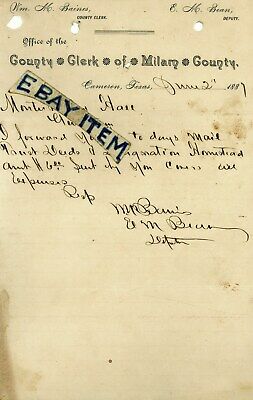 Wm. M. Baines,
COUNTY CLERK.
E. M. Bean,
DEPUTY.
Office of the
County Clerk of Milam County.
Cameron, Texas, June 2" 1887
EBAY ITEM
Hall
Gentlemen
I forward you to days mail
Trust Deeds & Designation Homestead
amt sent by you covers all
Expenses
Resp
WM Baines
E M Bean
Depty